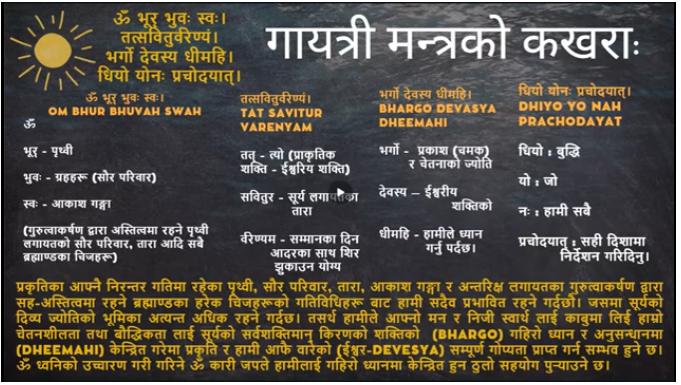 ॐ भूर् भुवः स्वः।
तत्सवितुर्वरेण्यं।
भर्गो देवस्य धीमहि।
धियो योनः प्रचोदयात्।
गायत्री मन्त्रको कखराः
ॐ भूर् भुवः स्वः।
OM BHUR BHUVAH SWAH
ॐ
भूर् - पृथ्वी
भुवः - ग्रहहरू (सौर परिवार)
स्वः - आकाश गङ्गा
(गुरुत्वाकर्षण द्वारा अस्तित्वमा रहने पृथ्वी
लगायतको सौर परिवार, तारा आदि सबै
ब्रह्माण्डका चिजहरू)
तत्सवितुर्वरेण्यं।
TAT SAVITUR
VARENYAM
तत् - त्यो (प्राकृतिक
शक्ति - ईश्वरिय शक्ति)
सवितुर - सूर्य लगायतका
तारा
वरेण्यम - सम्मानका दिन
आदरका साथ शिर
झुकाउन योग्य
भर्गो देवस्य धीमहि।
BHARGO DEVASYA
DHEEMAHI
भर्गो - प्रकाश (चमक)
र चेतनाको ज्योति
देवस्य – ईश्वरीय
शक्तिको
धीमहि - हामीले ध्यान
गर्नु पर्दछ।
धियो योनः प्रचोदयात्।
DHIYO YO NAH
PRACHODAYAT
धियो : बुद्धि
यो : जो
नः : हामी सबै
प्रचोदयात् : सही दिशामा
निर्देशन गरिदिनु।
प्रकृतिका आफ्नै निरन्तर गतिमा रहेका पृथ्वी, सौर परिवार, तारा, आकाश गङ्गा र अन्तरिक्ष लगायतका गुरुत्वाकर्षण द्वारा
सह-अस्तित्वमा रहने ब्रह्माण्डका हरेक चिजहरूको गतिविधिहरू बाट हामी सदैव प्रभावित रहने गर्दछौं। जसमा सूर्यको
दिव्य ज्योतिको भूमिका अत्यन्त अधिक रहने गर्दछ। तसर्थ हामीले आफ्नो मन र निजी स्वार्थ लाई काबुमा लिई हाम्रो
चेतनशीलता तथा बौद्धिकता लाई सूर्यको सर्वशक्तिमान् किरणको शक्तिको (BHARGO) गहिरो ध्यान र अनुसन्धानमा
(DHEEMAHI) केन्द्रित गरेमा प्रकृति र हामी आफै वारेको (ईश्वर-DEVESYA) सम्पूर्ण गोप्यता प्राप्त गर्न सम्भव हुने छ।
ॐ ध्वनिको उच्चारण गरी गरिने ॐ कारी जपले हामीलाई गहिरो ध्यानमा केन्द्रित हुन ठुलो सहयोग पुऱ्याउने छ।